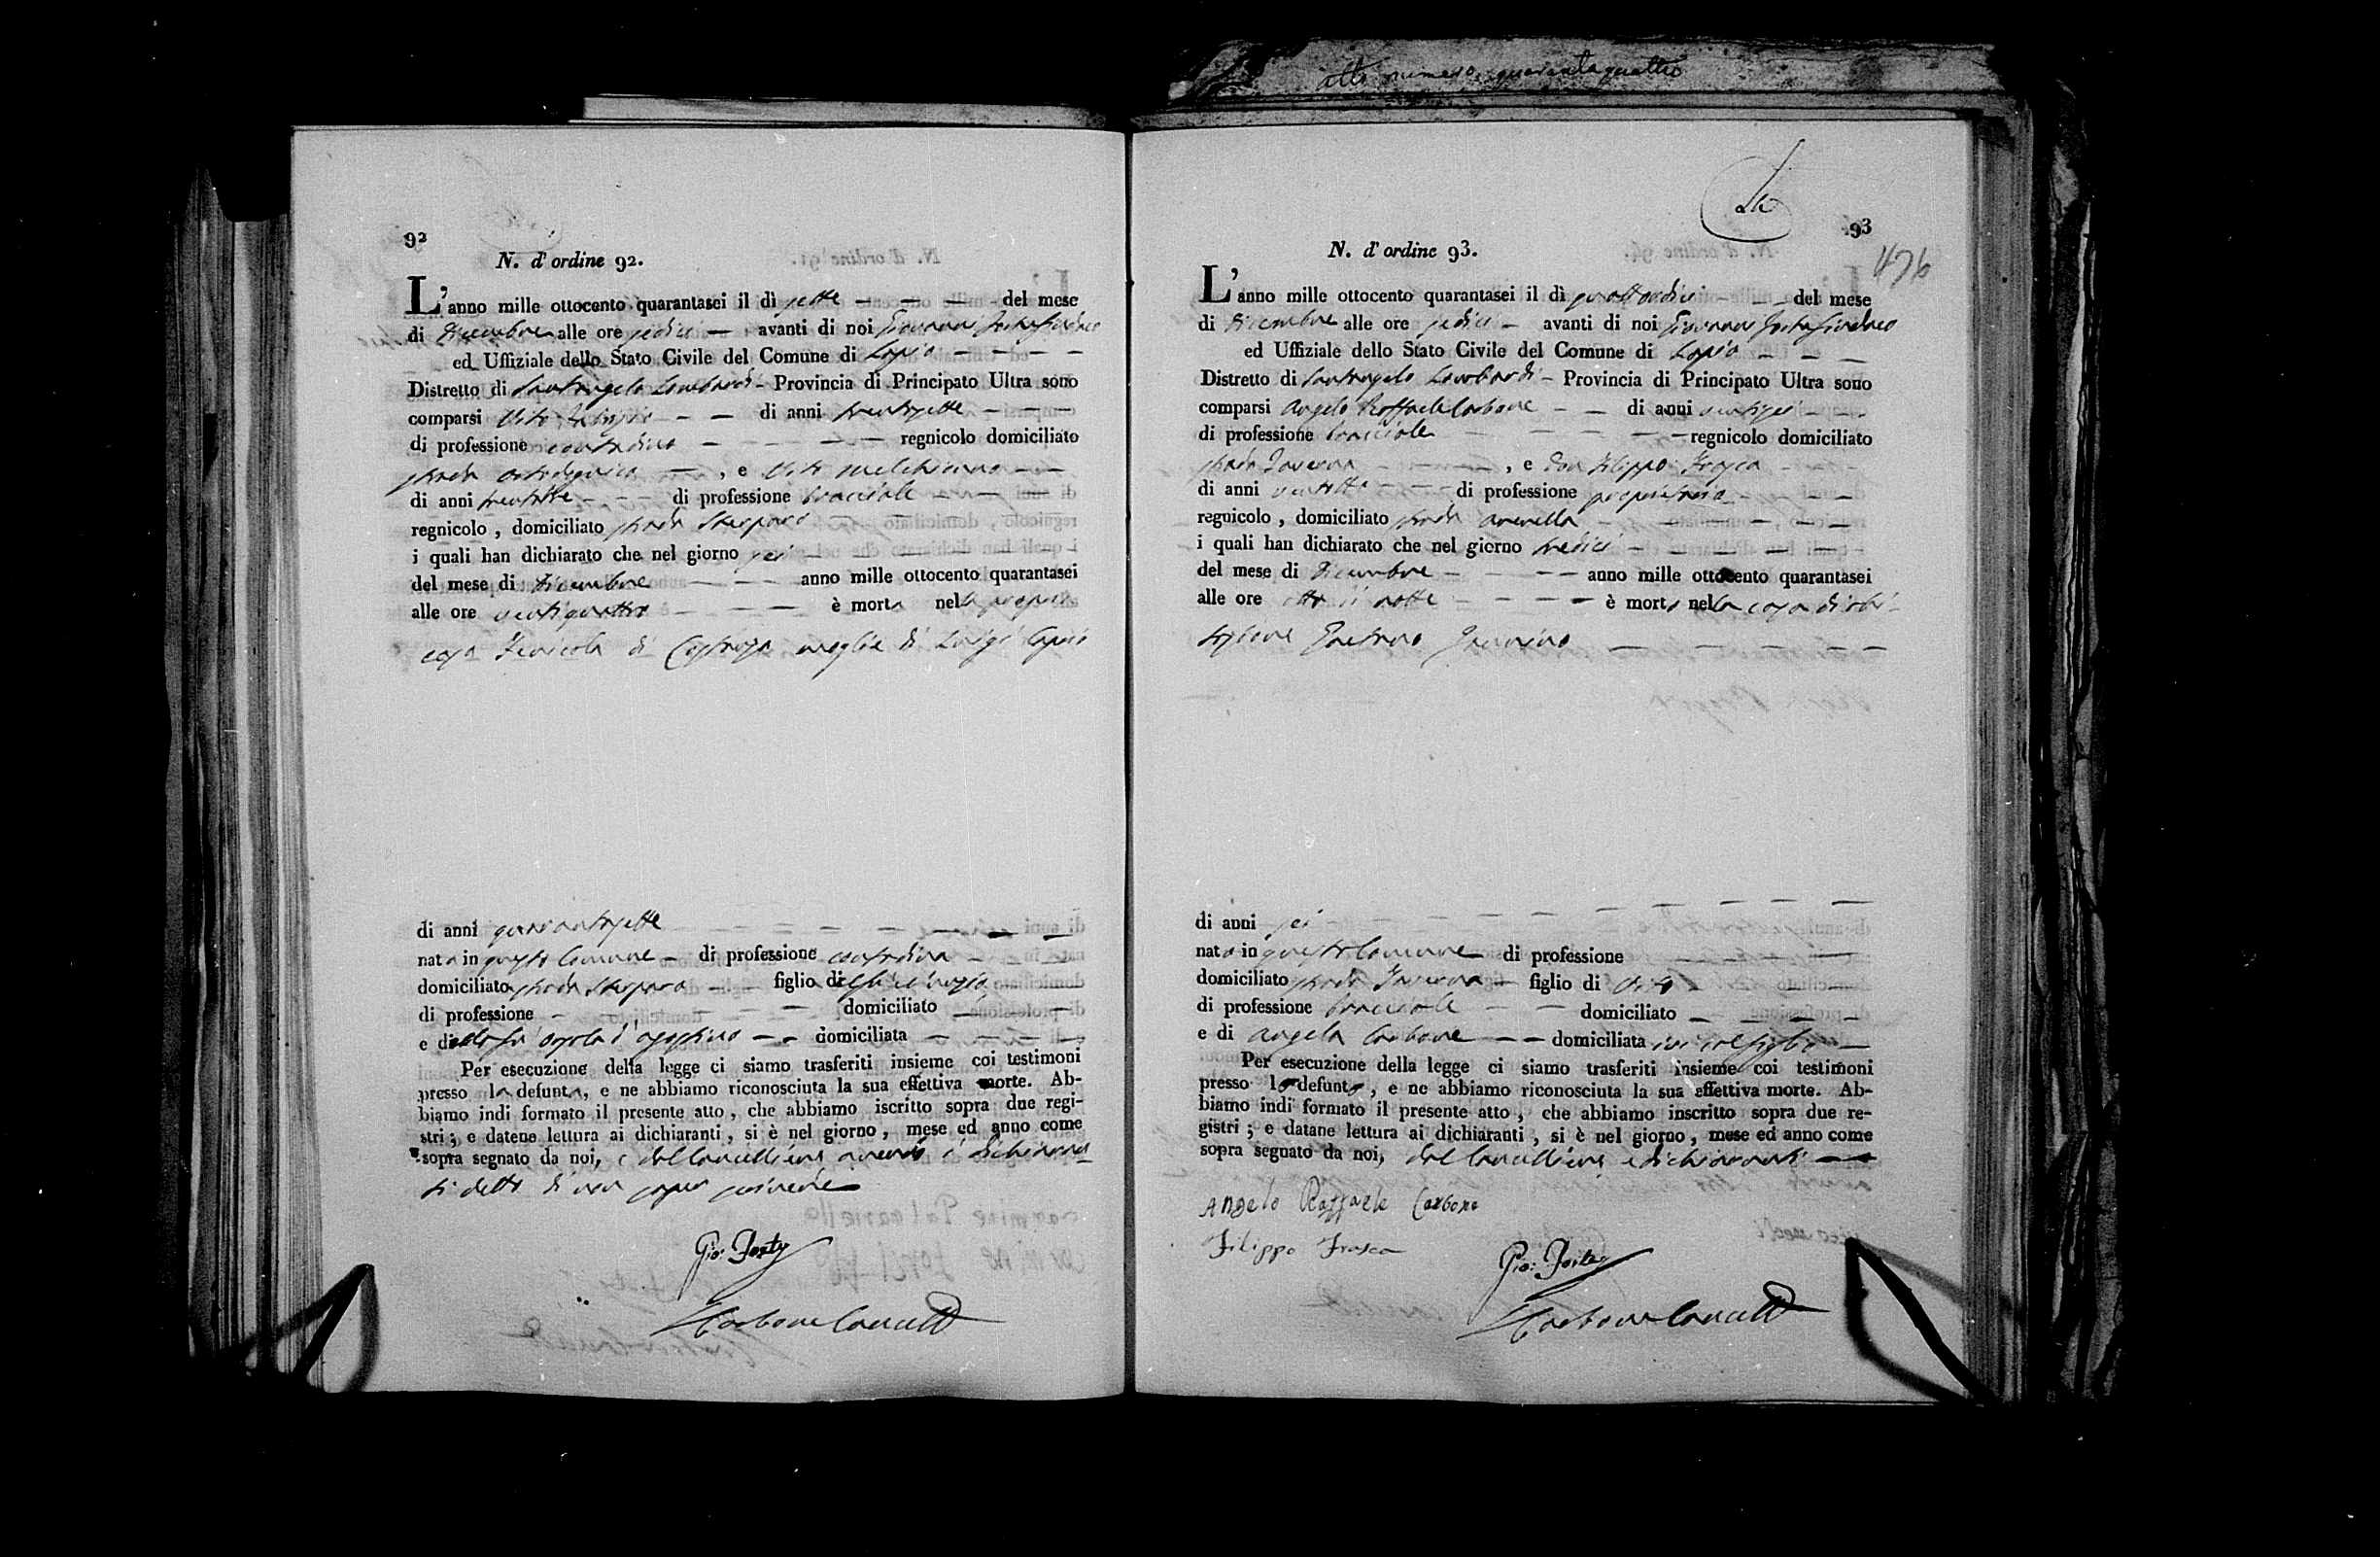 atto numero quarantaquattro
92
N. d'ordine 92.
L'anno mille ottocento quarantasei il dì sette — — — del mese
di Dicembre alle ore sedici — avanti di noi Giovanni Forte Sindaco
ed Uffiziale dello Stato Civile del Comune di Lapio — — — —
Distretto di Santangelo Lombardi — Provincia di Principato Ultra sono
comparsi Vito — — di anni trentasette — — —
di professione contadino — — — — regnicolo domiciliato
strada — , e Vito Melchionno — —
di anni trentotto — — — di professione bracciale — —
regnicolo, domiciliato strada — —
i quali han dichiarato che nel giorno sei —
del mese di Dicembre — — — anno mille ottocento quarantasei
alle ore ventiquattro — — — — è morta nella propria
casa di moglie di Luigi
di anni quarantasette — — — — — — —
nata in questo Comune — di professione contadina —
domiciliato strada — — figlio di
di professione — — — domiciliato — — —
e di — — domiciliata — — — —
Per esecuzione della legge ci siamo trasferiti insieme coi testimoni
presso la defunta, e ne abbiamo riconosciuta la sua effettiva morte. Ab-
biamo indi formato il presente atto, che abbiamo iscritto sopra due regi-
stri; e datene lettura ai dichiaranti, si è nel giorno, mese ed anno come
sopra segnato da noi, e dal Cancelliere avendo i dichiaran-
ti detto di non saper scrivere
Gio: Forte
Carbone Cancell
93
476
N. d'ordine 93.
L'anno mille ottocento quarantasei il dì quattordici — — del mese
di Dicembre alle ore sedici — avanti di noi Giovanni Forte Sindaco
ed Uffiziale dello Stato Civile del Comune di Lapio — — —
Distretto di Santangelo Lombardi — Provincia di Principato Ultra sono
comparsi Angelo Raffaele Carbone — — di anni ventisei — — —
di professione bracciale — — — — — regnicolo domiciliato
strada Taverna — — — , e Don Filippo Frasca —
di anni ventotto — — — di professione proprietario — — —
regnicolo, domiciliato strada arenella — — — — —
i quali han dichiarato che nel giorno tredici — — — — — —
del mese di Dicembre — — — — anno mille ottocento quarantasei
alle ore otto di notte — — — — è morto nella casa di abi-
tazione Gaetano — — — — — — —
di anni sei — — — — — — — —
nato in questo Comune di professione — — —
domiciliato strada Taverna — figlio di Vito — — —
di professione bracciale — — domiciliato — — — —
e di Angela Carbone — — domiciliata ivi col figlio —
Per esecuzione della legge ci siamo trasferiti insieme coi testimoni
presso lo defunto, e ne abbiamo riconosciuta la sua effettiva morte. Ab-
biamo indi formato il presente atto, che abbiamo inscritto sopra due re-
gistri; e datane lettura ai dichiaranti, si è nel giorno, mese ed anno come
sopra segnato da noi, dal Cancelliere e dichiaranti —
Angelo Raffaele Carbone
Filippo Frasca
Gio: Forte
Carbone Cancell